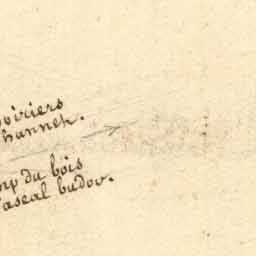 oiriers
hannek.
mp du bois
ascal budov.